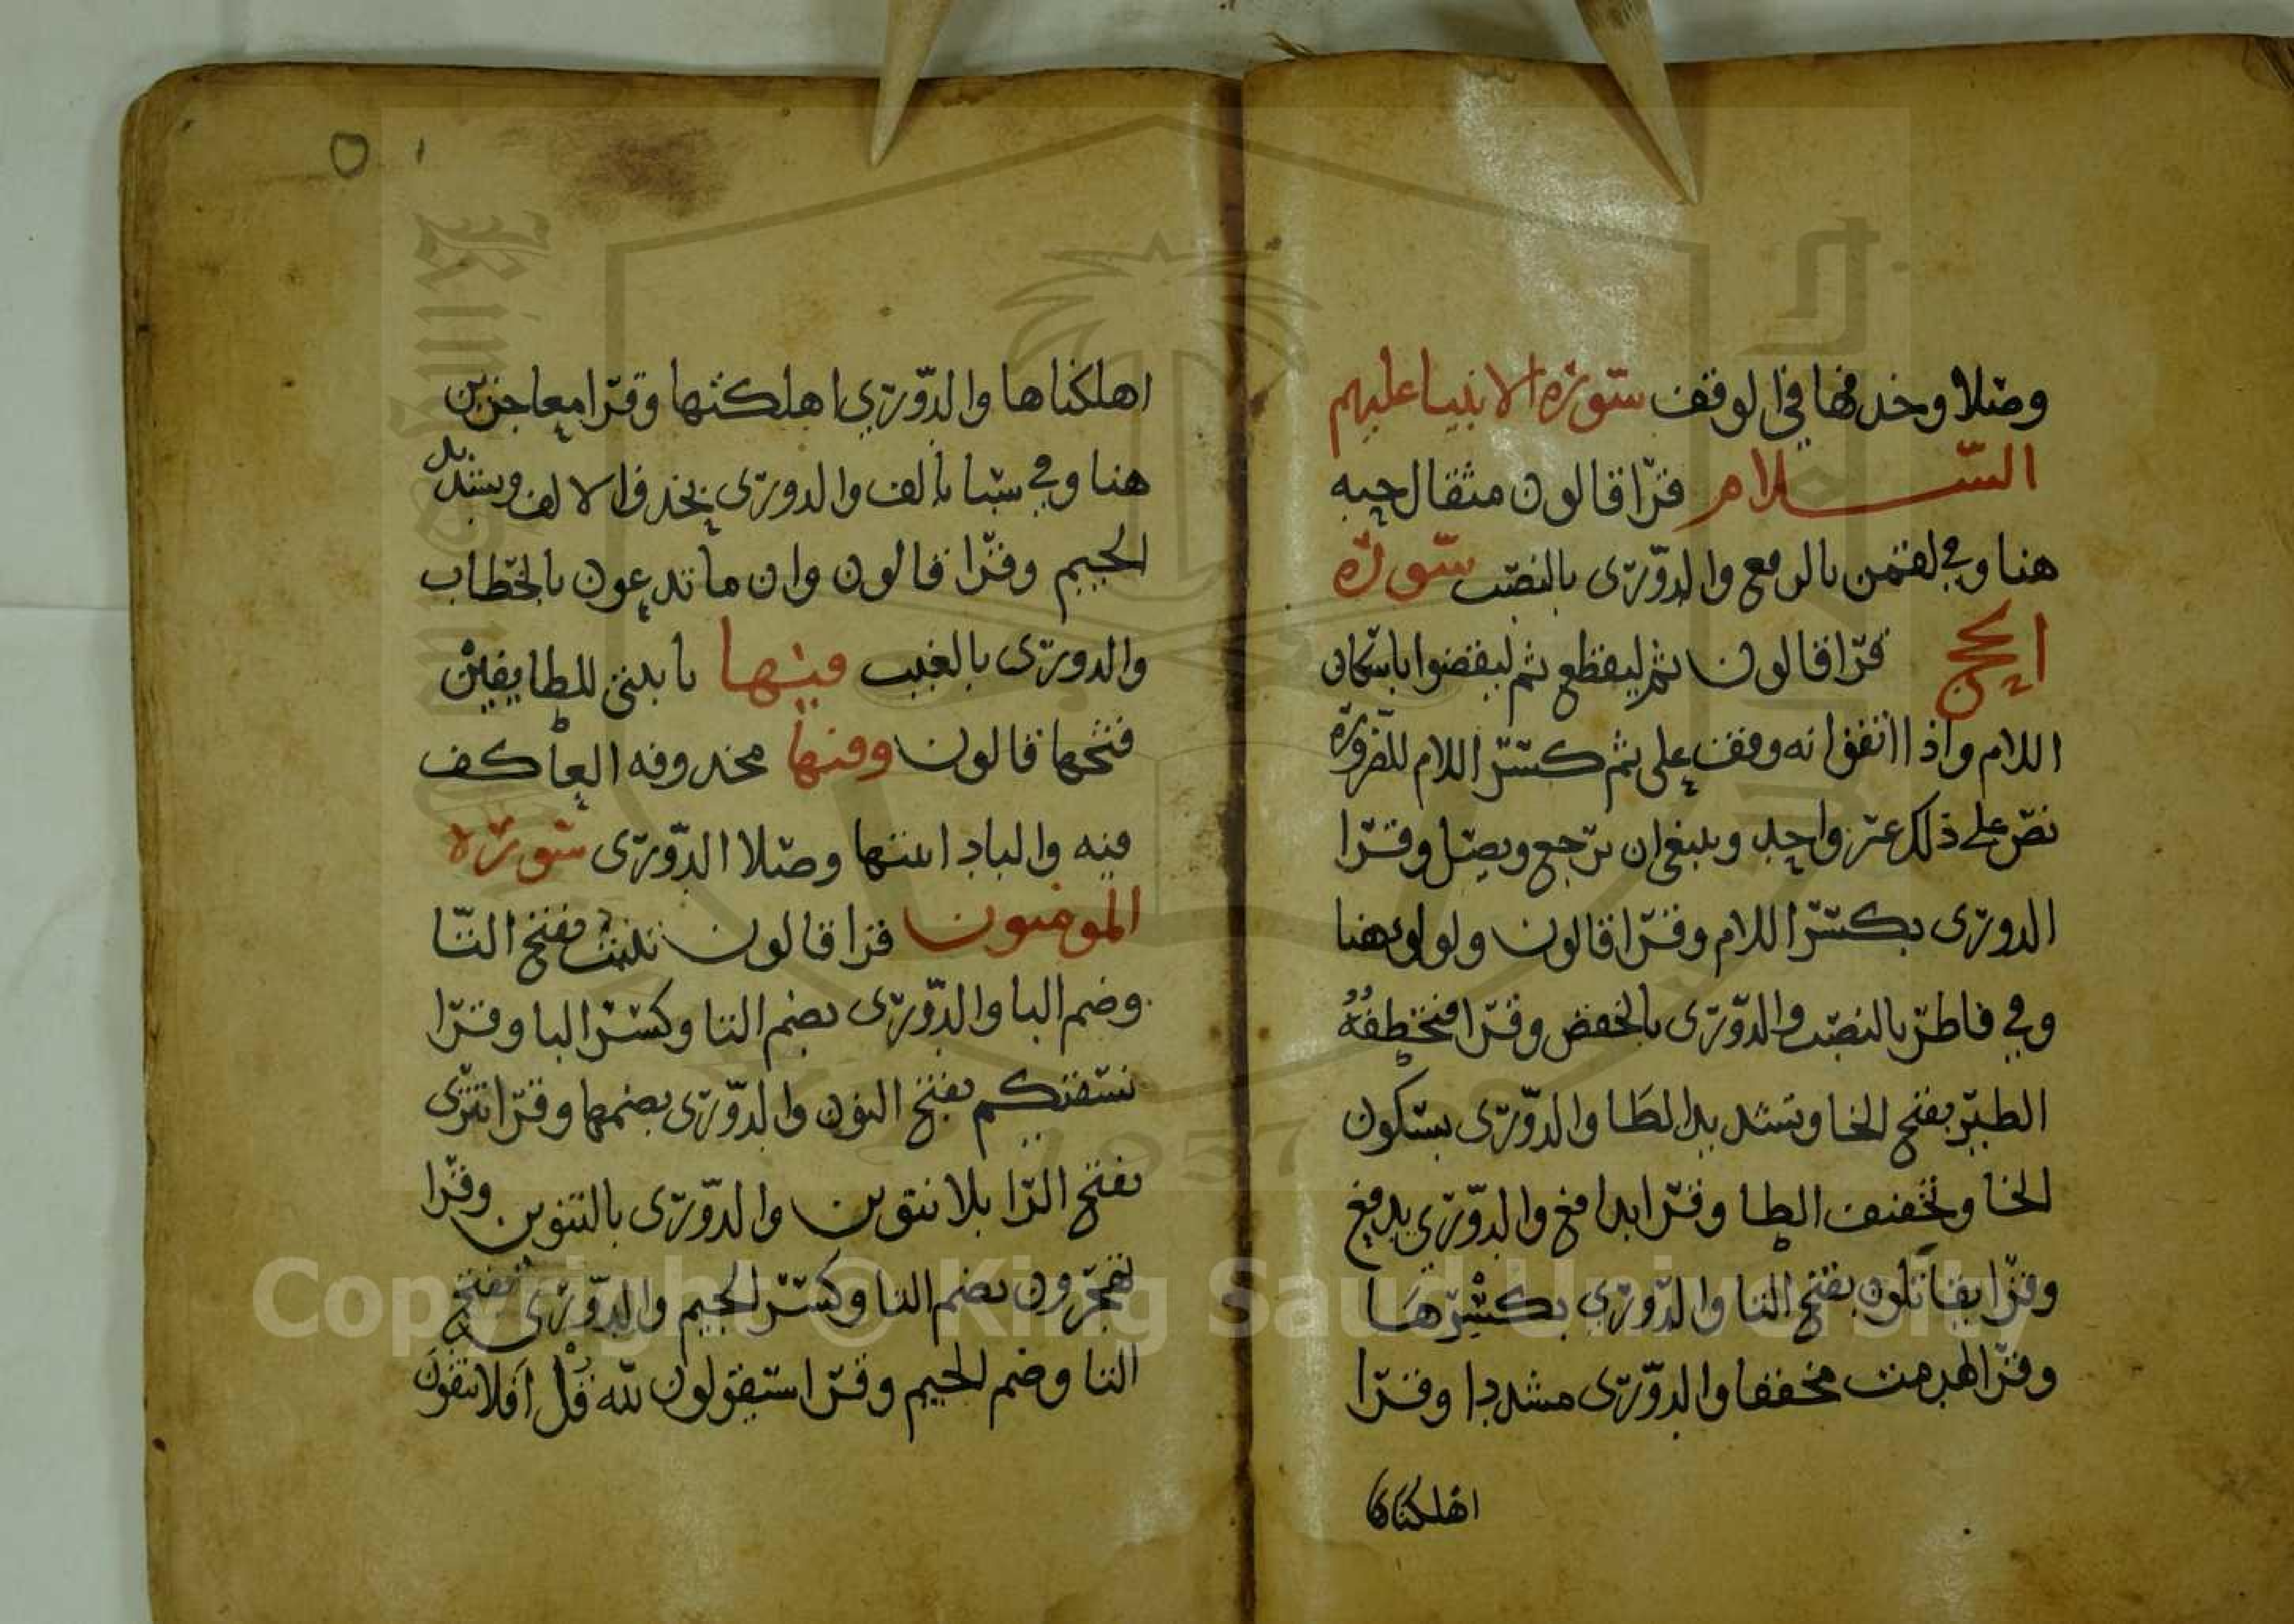 وصلا وحذفها في الوقف سورة الانبيا عليهم
السلام قرا قالون مثقال حبه
هنا وفي لقمن بالرفع والدوري بالنصب سورة
الحج قرا قالون ثم ليقطع ثم ليقضوا باسكان
اللام واذا اتفق انه وقف على ثم كسر اللام للضرورة
نص على ذلك غير واحد وينبغي ان يرجع ويصل وقرا
الدوري بكسر اللام وقرا قالون ولولوا هنا
وفي فاطر بالنصب والدوري بالخفض وقرا فتخطفه
الطير بفتح الخا وتشديد الطا والدوري بسكون
الخا وتخفيف الطا وقرا يدافع والدوري يدفع
وقرا يقاتلون بفتح التا والدوري بكسرها
وقرا لهدمت مخففا والدوري مشددا وقرا
اهلكناها
اهلكناها والدوري اهلكتها وقرا معاجزين
هنا وفي سبا بالف والدوري بحذف الالف وتشديد
الجيم وقرا قالون وان ما تدعون بالخطاب
والدوري بالغيب فيها يا بيتي للطايفين
فتحها قالون وفيها محذوفه العاكف
فيه والباد اثبتها وصلا الدوري سورة
المومنون قرا قالون تنبت بفتح التا
وضم البا والدوري بضم التا وكسر البا وقرا
نسقيكم بفتح النون والدوري بضمها وقرا تترى
بفتح الرا بلا تنوين والدوري بالتنوين وقرا
تهجرون بضم التا وكسر الجيم والدوري بفتح
التا وضم الجيم وقرا سيقولون لله قل افلا تتقون
Copyright © King Saud University
1957